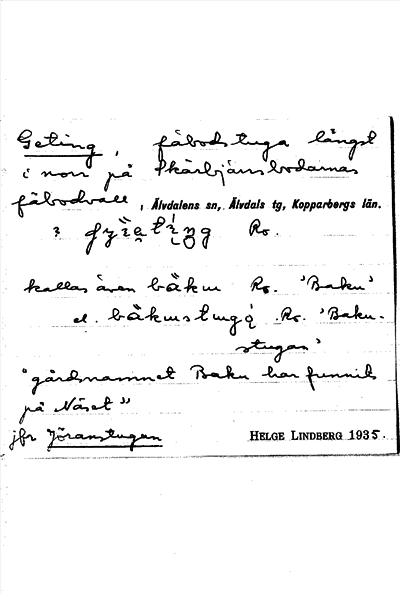 Geting, fäbodstuga längst
i norr på Skärbjörnsbodarnas
fäbodvall, Älvdalens sn, Älvdals tg, Kopparbergs län.
Ro.
kallas även båkun Ro. 'Baku'
el. Ro. 'Baku-
stugan'
"gårdsnamnet Baku har funnits
på Näset"
jfr Jöranstugan
HELGE LINDBERG 1935.